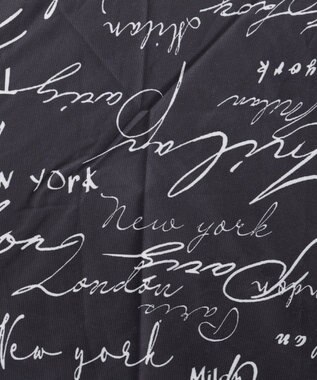 Milan
york
Paris
Milan
Milan
YORK
New york
Paris
London
London
Paris
New york
an
Mila